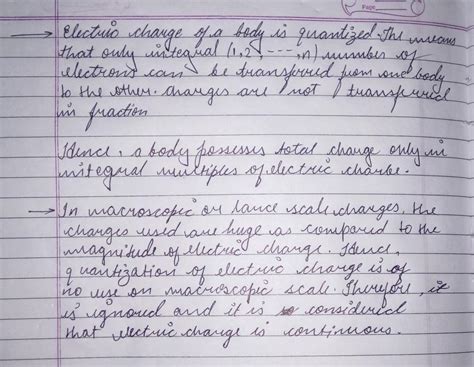 Page
→ Electric charge of a body is quantized. The means
that only integral (1,2, ----, n) number of
electrons can be transferred from one body
to the other. Charges are not transferred
in fraction
Hence, a body possesses total charge only in
integral multiples of electric charge.
→ In macroscopic or lance scale charges, the
charges used are huge as compared to the
magnitude of electric charge. Hence,
quantization of electric charge is of
no use on macroscopic scale. Therefore, it
is ignored and it is considered
that electric charge is continuous.